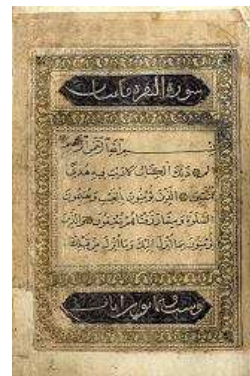 سورة البقرة مائتان
بسم الله الرحمن الرحيم
الم ذلك الكتاب لا ريب فيه هدى
للمتقين الذين يؤمنون بالغيب ويقيمون
الصلوة ومما رزقناهم ينفقون والذين
يؤمنون بما انزل اليك وما انزل من قبلك